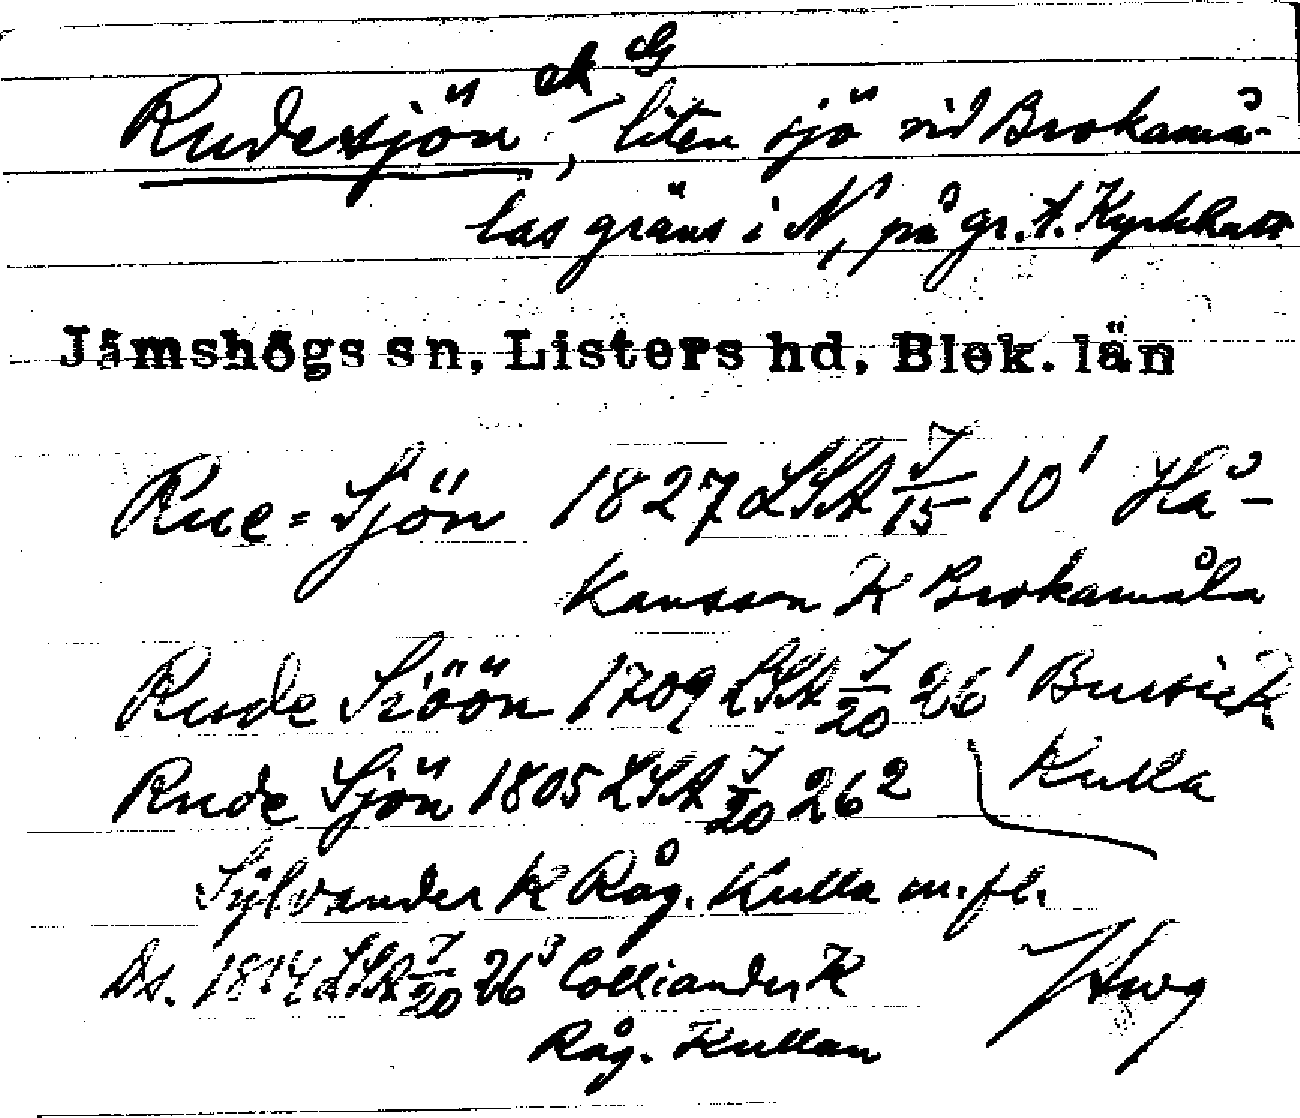 Rudesjön, liten sjö vid Brokamå-
las gräns i N, på gr. t. Kyrkhult
Jämshögs sn, Listers hd, Blek. län
Rue=Sjön 1827 LSA J/15 10¹ Hå-
kansson K Brokamåla
Rude Siöön 1709 LSA J/20 26¹ Bursie K
Kulla
Rude Sjön 1805 LSA J/20 26²
Sÿlvander K Råg. Kulla m.fl.
Ds. 1814 LSA J/20 26³ Colliander K
Råg. Kullan